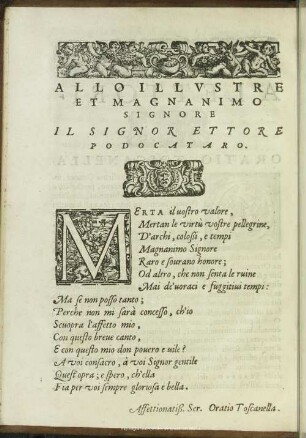 ALLO ILLVSTRE
ET MAGNANIMO
SIGNORE
IL SIGNOR ETTORE
PODOCATARO.
MERTA il uostro valore,
Mertan le virtù vostre pellegrine,
D'archi, colossi, e tempi
Magnanimo Signore
Raro e sourano honore;
Od altro, che non senta le ruine
Mai de' uoraci e fuggitiui tempi:
Ma se non posso tanto;
Perche non mi sarà concesso, ch'io
Scuopra l'affetto mio,
Con questo breue canto,
E con questo mio don pouero e uile?
A voi consacro, à voi Signor gentile
Quest'opra; e spero, ch'ella
Fia per voi sempre gloriosa e bella.
Affettionatiss. Ser. Oratio Toscanella.